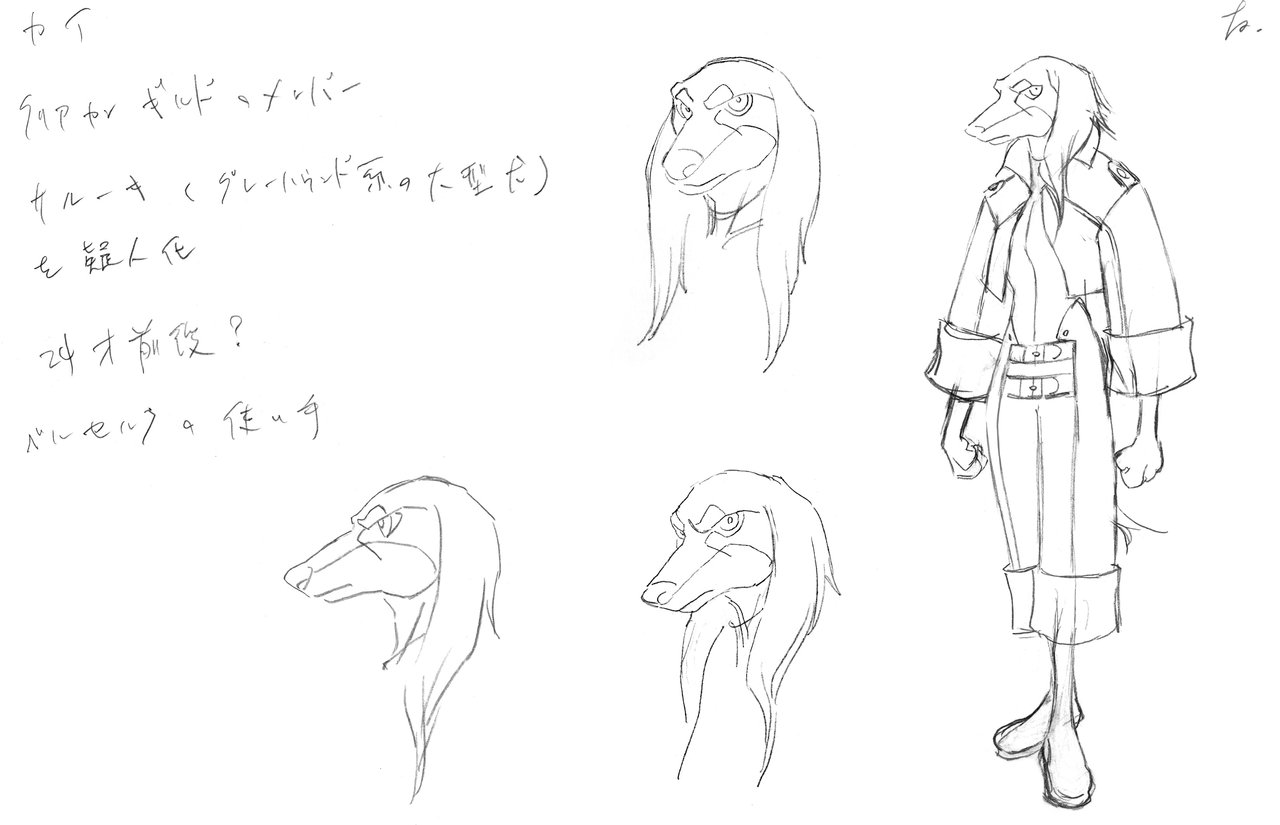 カイ
クリアカンギルドのメンバー
サルーキ（グレーハウンド系の大型犬）
を擬人化
24才前後？
ベルセルクの使い手